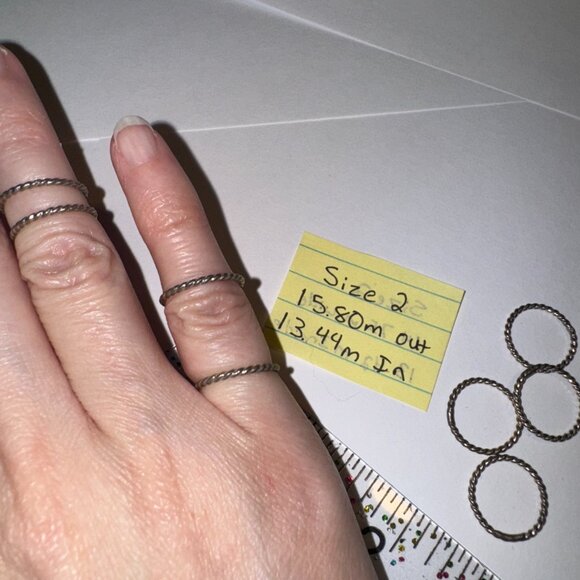 Size 2
15.80m out
13.44m In